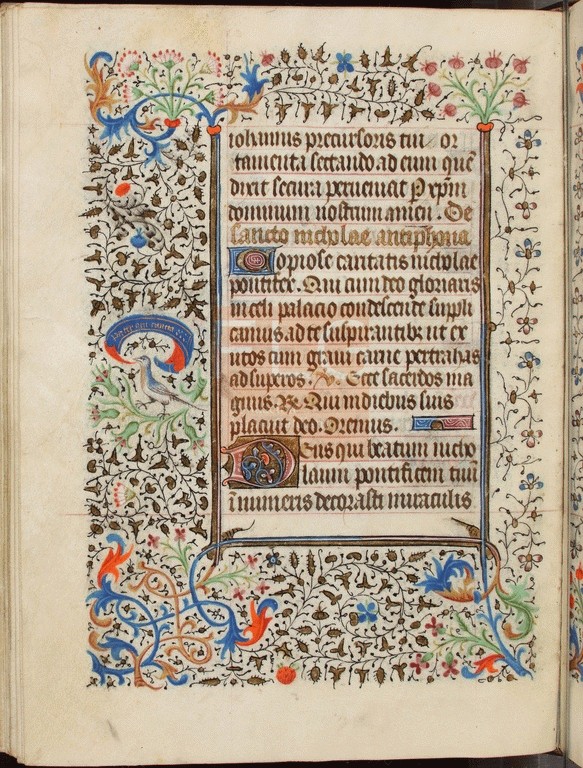 iohannis precursoris tui or
tamenta sectando ad eum quē
dixit secura perueniat P xp̄m
dominum nostrum amen. De
sancto nicholae antiphona
Copiose caritatis nicholae
pontifex. Qui cum deo gloriaris
in celi palacio condescende suppli
camus ad te suspirantibꝫ ut ex
utos cum graui carne pertrahas
ad superos. V. Ecce sacerdos ma
gnus. R. Qui in diebus suis
placuit deo. Oremus.
Deus qui beatum nicho
laum pontificem tuū
īnumeris decorasti miraculis